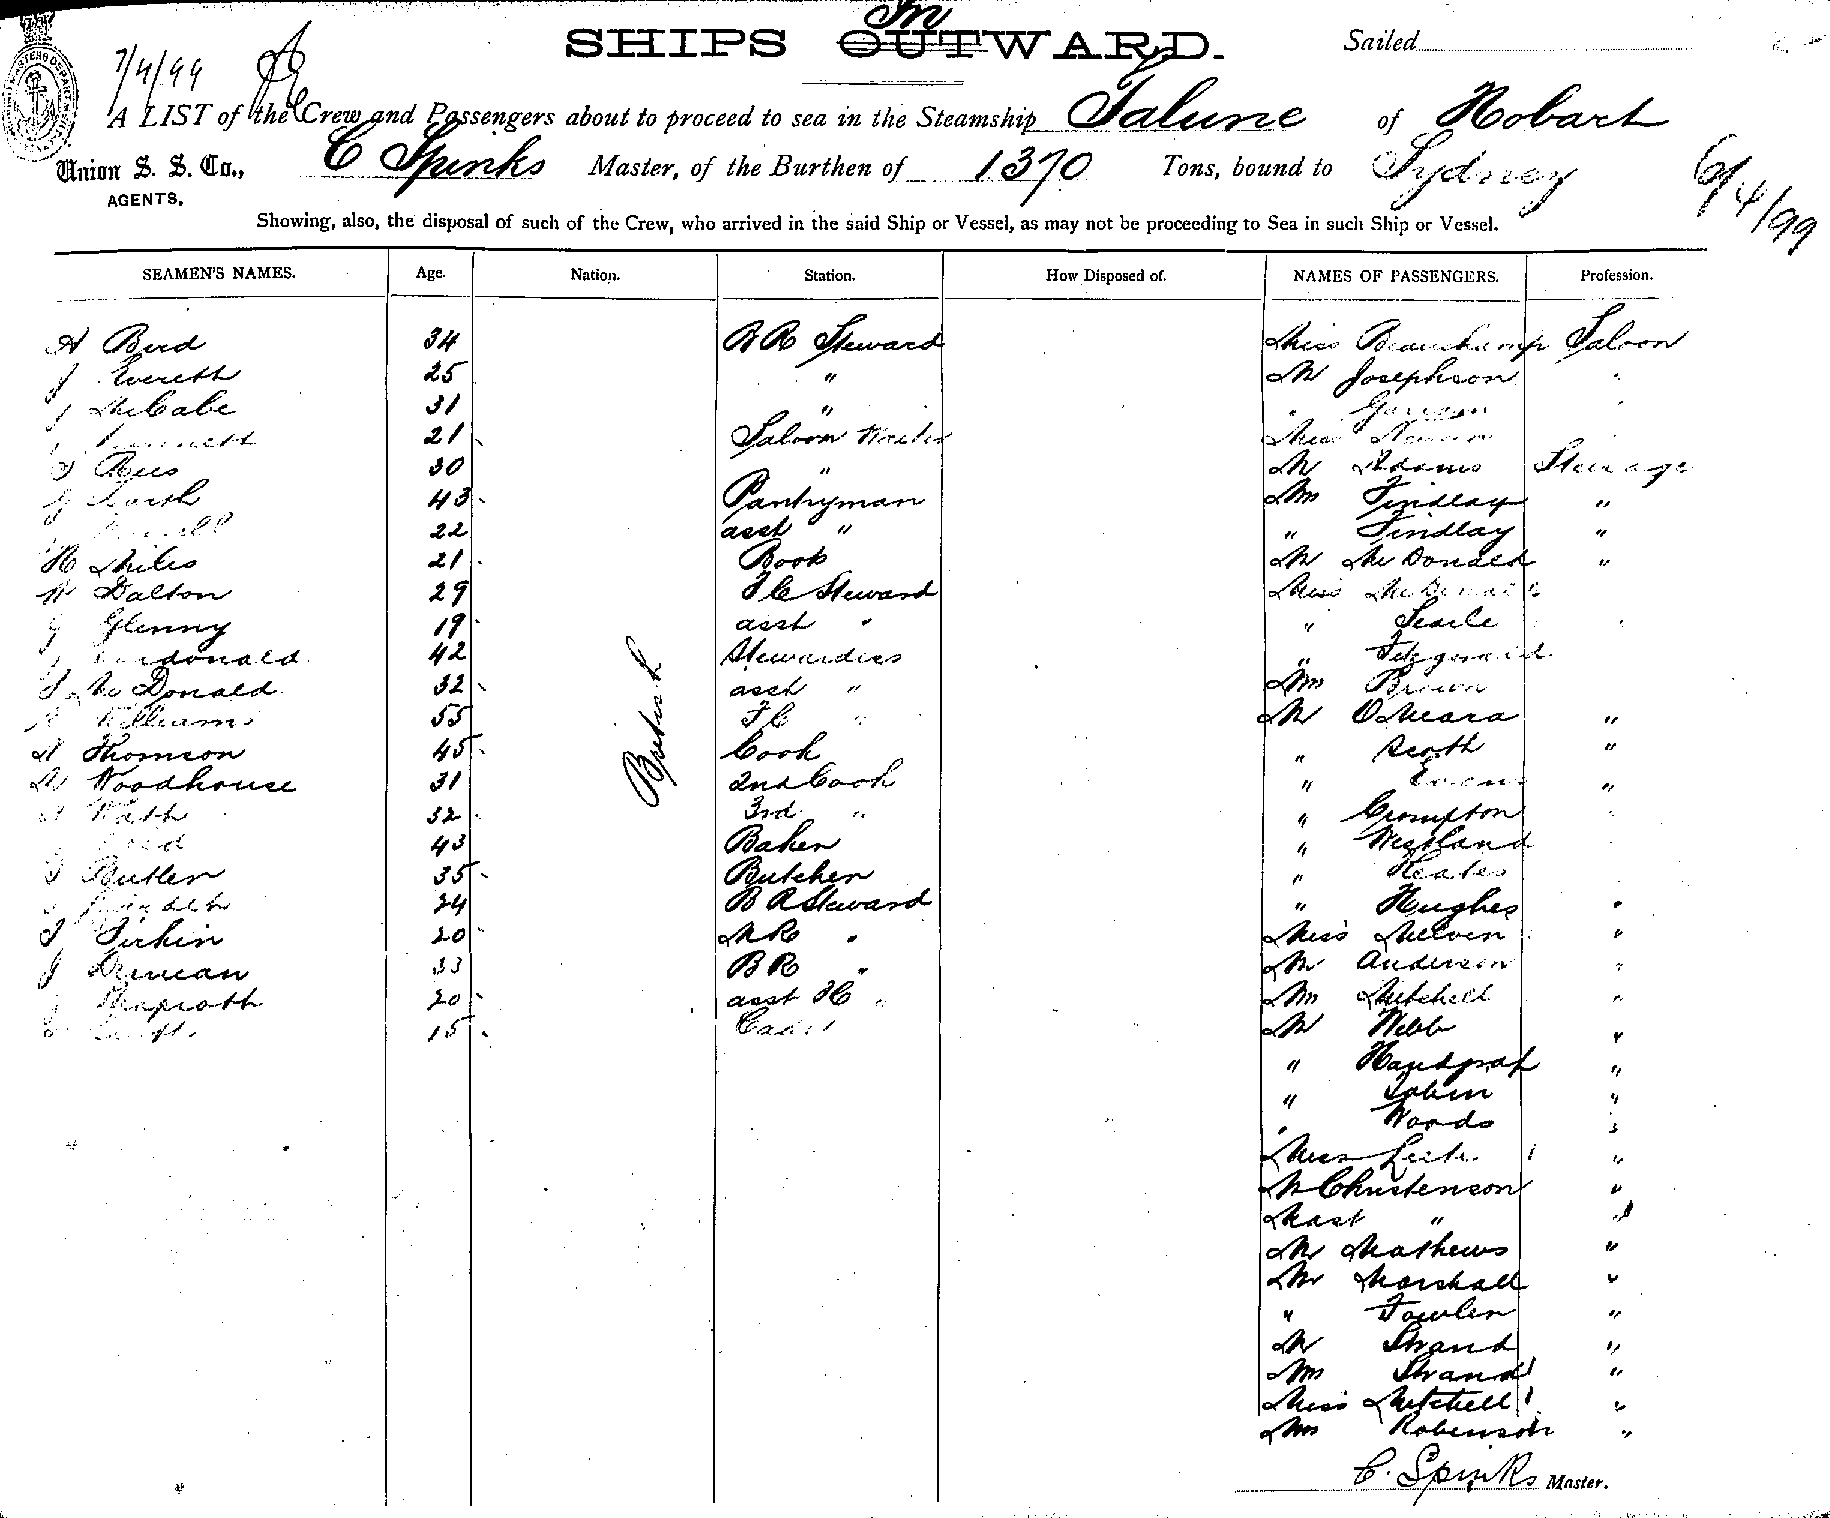 In
SHIPS OUTWARD.
Sailed
7/4/99
A LIST of the Crew and Passengers about to proceed to sea in the Steamship Talune of Hobart
Union S. S. Co., C Spinks Master, of the Burthen of 1370 Tons, bound to Sydney
6/4/99
AGENTS.
Showing, also, the disposal of such of the Crew, who arrived in the said Ship or Vessel, as may not be proceeding to Sea in such Ship or Vessel.
SEAMEN'S NAMES. Age. Nation. Station. How Disposed of. NAMES OF PASSENGERS. Profession.
A Bird 34 B R Steward Miss Beauchamp Saloon
J Everett 25 " M Josephson "
J McCabe 31 "
21 Saloon Waiter Miss
Rees 30 " M Adams Steerage
43 Pantryman Mrs Findlay "
22 asst " " Findlay "
H Miles 21 M McDonald "
W Dalton 29 F C Steward Miss
G Glenny 19 asst " " Searle
Macdonald 42 Stewardess " Fitzgerald
McDonald 32 asst " Mrs Brown
Williams 55 F C " M OMeara "
Thomson 45 Cook " Scott "
W Woodhouse 31 2nd Cook " "
British
Watt 32 3rd " " Crompton
43 Baker " Westland
Butler 35 Butcher " Keates
24 B R Steward " Hughes "
20 M R " Miss "
J Duncan 33 B R " M Anderson "
20 asst " Mrs Mitchell "
15 Cadet M Webb "
" "
" Tobin "
" Woods "
Miss "
M Christenson "
Mast " "
M Mathews "
Mr Marshall "
" Fowler "
M Strand "
Mrs Strand "
Miss Mitchell "
Mrs Robinson "
C. Spinks Master.